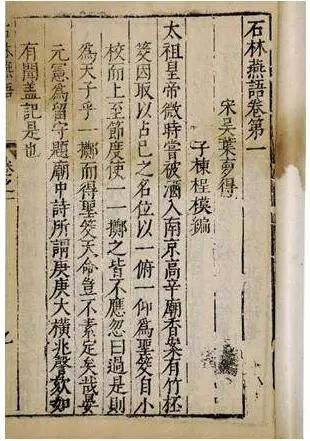 石林燕語卷第一
宋吳葉夢得
子棟桯模編
太祖皇帝微時嘗被酒入南京高辛廟香案有竹桮
筊因取以占己之名位以一俯一仰爲聖筊自小
校而上至節度使一一擲之皆不應忽曰過是則
爲天子乎一擲而得聖筊天命豈不素定矣哉晏
元憲爲留守題廟中詩所謂庚庚大橫兆謦欬如
有聞蓋記是也
石林燕語